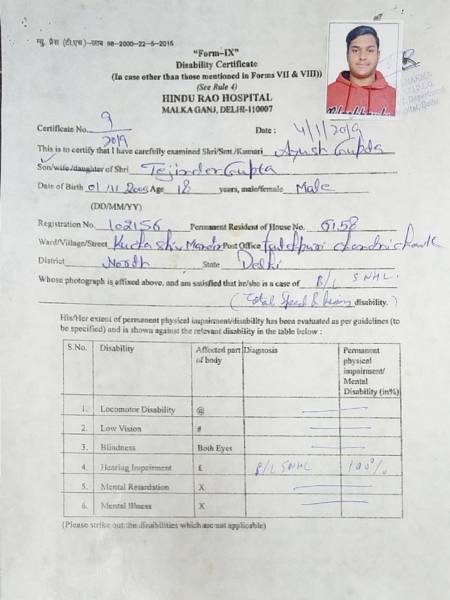 "Form-IX"
Disability Certificate
(In case other than those mentioned in Forms VII & VIII))
(See Rule 4)
HINDU RAO HOSPITAL
MALKA GANJ, DELHI-110007
Certificate No. 9
2019
Date : 4/1/2019
This is to certify that I have carefully examined Shri/Smt./Kumari Ayush Gupta
Son/wife/daughter of Shri Tejinder Gupta
Date of Birth 01/11/ Age 18 years, male/female Male
(DD/MM/YY)
Registration No. 102156 Permanent Resident of House No. 6158
Ward/Village/Street Kucha Shiv Mandir Post Office Fatehpuri chandni chowk
District North State Delhi
Whose photograph is affixed above, and am satisfied that he/she is a case of B/L SNHL.
(Total Speech & hearing disability.)
His/Her extent of permanent physical impairment/disability has been evaluated as per guidelines (to
be specified) and is shown against the relevant disability in the table below :
S.No. Disability Affected part of body Diagnosis Permanent physical impairment/ Mental Disability (in%)
1. Locomotor Disability @
2. Low Vision #
3. Blindness Both Eyes
4. Hearing Impairment £ B/L SNHL 100%
5. Mental Retardation X
6. Mental Illness X
(Please strike out the disabilities which are not applicable)